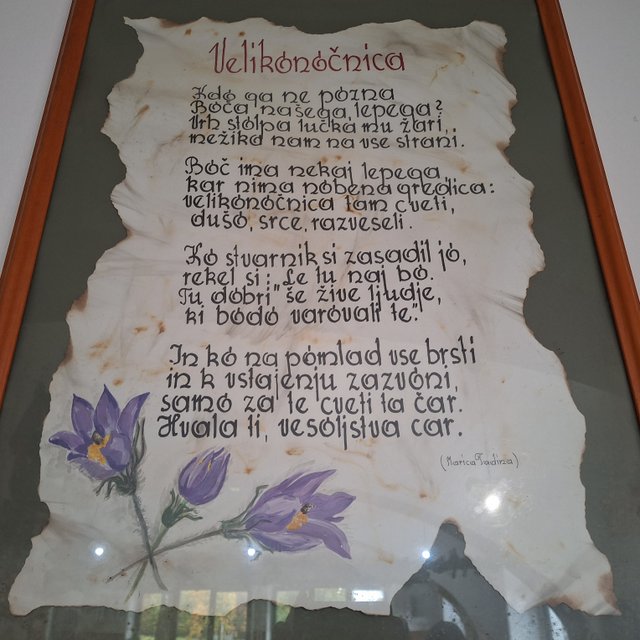 Velikonočnica
Kdo ga ne pozna
Boča našega, lepega?
Vrh stolpa lučka mu žari,
mežika nam na vse strani.
Boč ima nekaj lepega,
kar nima nobena gredica:
velikonočnica tam cveti,
dušo, srce, razveseli.
Ko stvarnik si zasadil jo,
rekel si: „Le tu naj bo.
Tu dobri še žive ljudje,
ki bodo varovali te."
In ko na pomlad vse brsti
in k vstajenju zazvoni,
samo za te cveti ta čar.
Hvala ti, vesoljstva car.
(Marica)